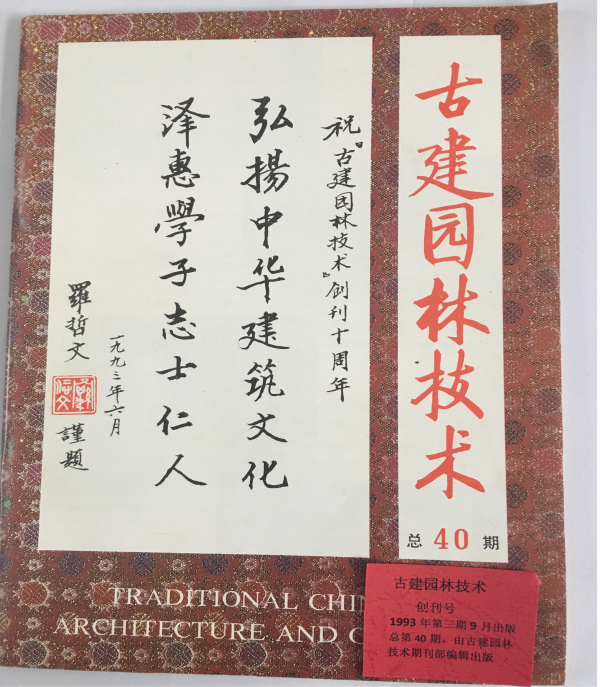 古建园林技术
总 40 期
祝“古建园林技术”创刊十周年
弘揚中华建筑文化
泽惠學子志士仁人
一九九三年六月
羅哲文
謹題
TRADITIONAL CHIN
ARCHITECTURE AND G
古建园林技术
创刊号
1993 年第三期 9 月出版
总第 40 期，由古建园林
技术期刊部编辑出版